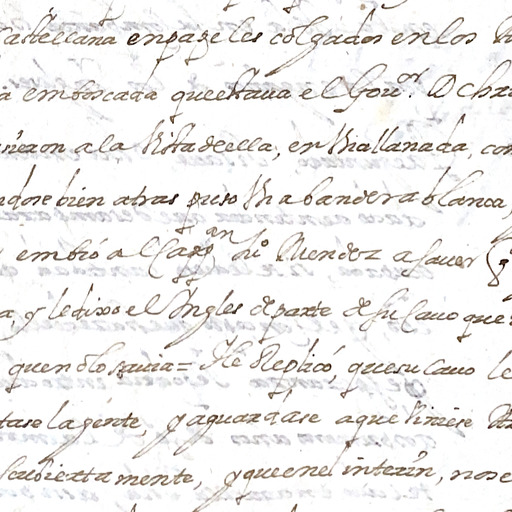 Castellana en papeles colgados en los
a emboscada que estaua el Gou.or D Chr
eron a la Vista de ella, en Vna llanada, con
ndose bien atras puso Vna bandera blanca,
embió al Cap.an Ju.o Mendez a sauer
a, y le dixo el Ingles de parte de su Cauo que
que no lo sauia = He Replicó, que su Cauo le
tase la gente, y aguardase a que Viniese
descubiertamente, y que en el interin, no se